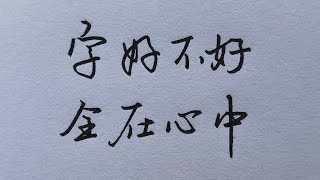 字好不好
全在心中